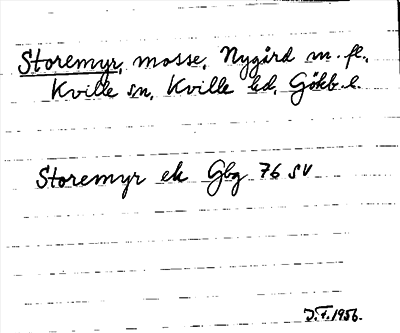 Storemyr, mosse, Nygård m. fl.,
Kville sn, Kville hd, Götkb. l.
Storemyr ek Gbg 76 SV
J.F. 1956.